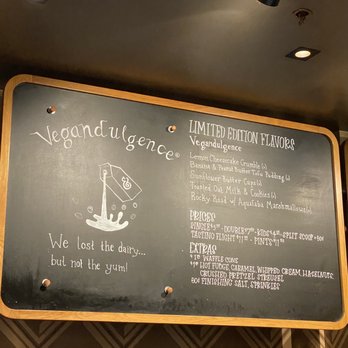 Vegandulgence®
We lost the dairy...
but not the yum!
LIMITED EDITION FLAVORS
Vegandulgence
Lemon Cheesecake Crumble (v)
Banana & Peanut Butter Tofu Pudding (v)
Sunflower Butter Cups (v)
Toasted Oat Milk & Cookies (v)
Rocky Road w/ Aquafaba Marshmallows (v)
PRICES
SINGLE DOUBLE KIDS SPLIT SCOOP
TASTING FLIGHT PINTS
EXTRAS
WAFFLE CONE
HOT FUDGE, CARAMEL, WHIPPED CREAM, HAZELNUTS,
CRUSHED PRETZEL STREUSEL
FINISHING SALT, SPRINKLES